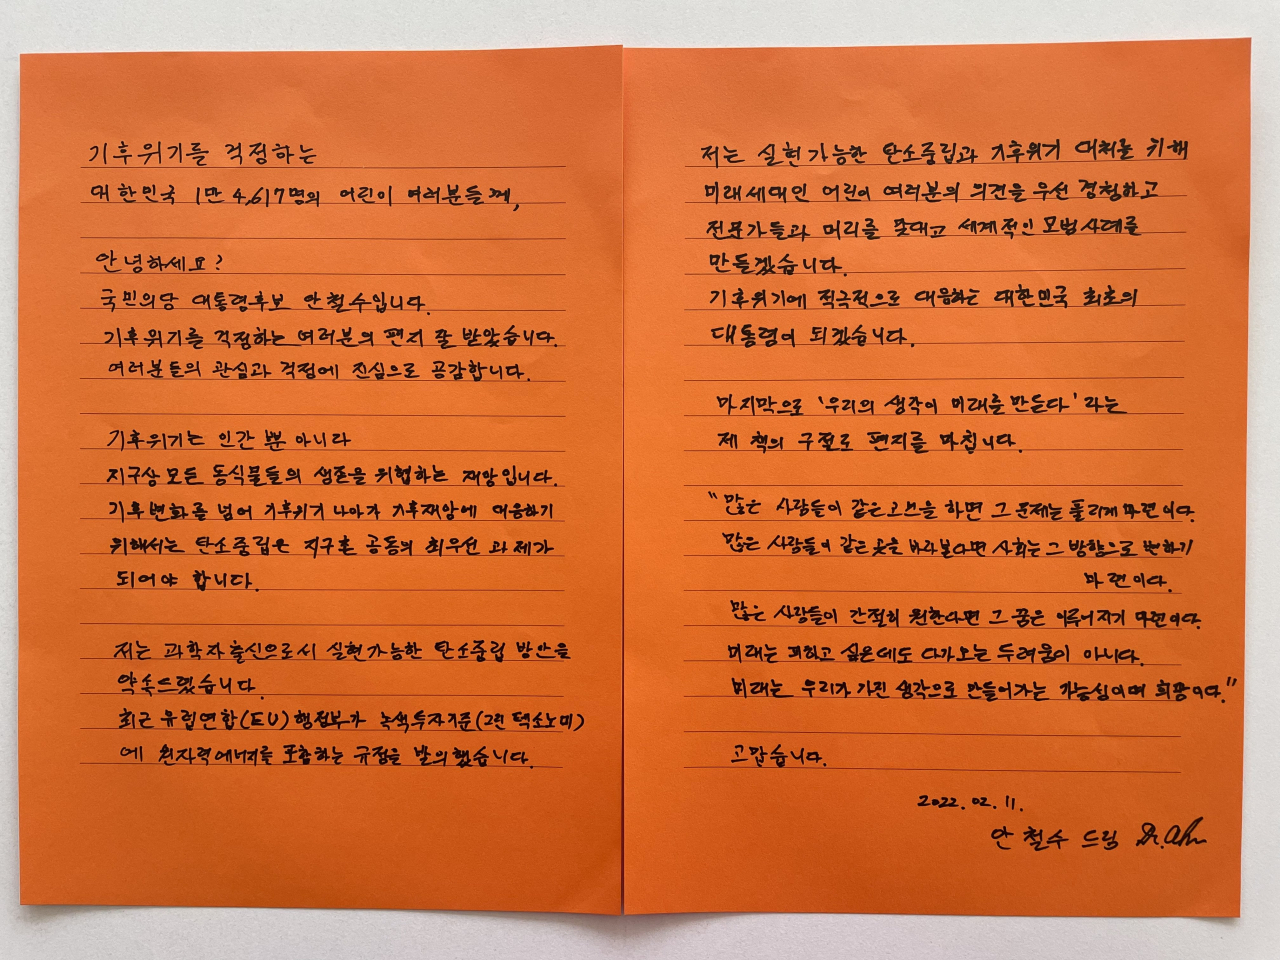 기후위기를 걱정하는
대한민국 1만 4,617명의 어린이 여러분들께,
안녕하세요?
국민의당 대통령후보 안철수입니다.
기후위기를 걱정하는 여러분의 편지 잘 받았습니다.
여러분들의 관심과 걱정에 진심으로 공감합니다.
기후위기는 인간 뿐 아니라
지구상 모든 동식물들의 생존을 위협하는 재앙입니다.
기후변화를 넘어 기후위기 나아가 기후재앙에 대응하기
위해서는 탄소중립은 지구촌 공동의 최우선 과제가
되어야 합니다.
저는 과학자출신으로서 실현가능한 탄소중립 방안을
약속드렸습니다.
최근 유럽연합(EU)행정부가 녹색투자기준(그린 택소노미)
에 원자력에너지를 포함하는 규정을 발의했습니다.
저는 실현가능한 탄소중립과 기후위기 대처를 위해
미래세대인 어린이 여러분의 의견을 우선 경청하고
전문가들과 머리를 맞대고 세계적인 모범사례를
만들겠습니다.
기후위기에 적극적으로 대응하는 대한민국 최초의
대통령이 되겠습니다.
마지막으로 '우리의 생각이 미래를 만든다'라는
제 책의 구절로 편지를 마칩니다.
"많은 사람들이 같은고민을 하면 그 문제는 풀리게 마련이다.
많은 사람들이 같은 곳을 바라본다면 사회는 그 방향으로 변하기
마련이다.
많은 사람들이 간절히 원한다면 그 꿈은 이루어지기 마련이다.
미래는 피하고 싶은데도 다가오는 두려움이 아니다.
미래는 우리가 가진 생각으로 만들어가는 가능성이며 희망이다."
고맙습니다.
2022. 02. 11.
안철수 드림 Dr. Ahn